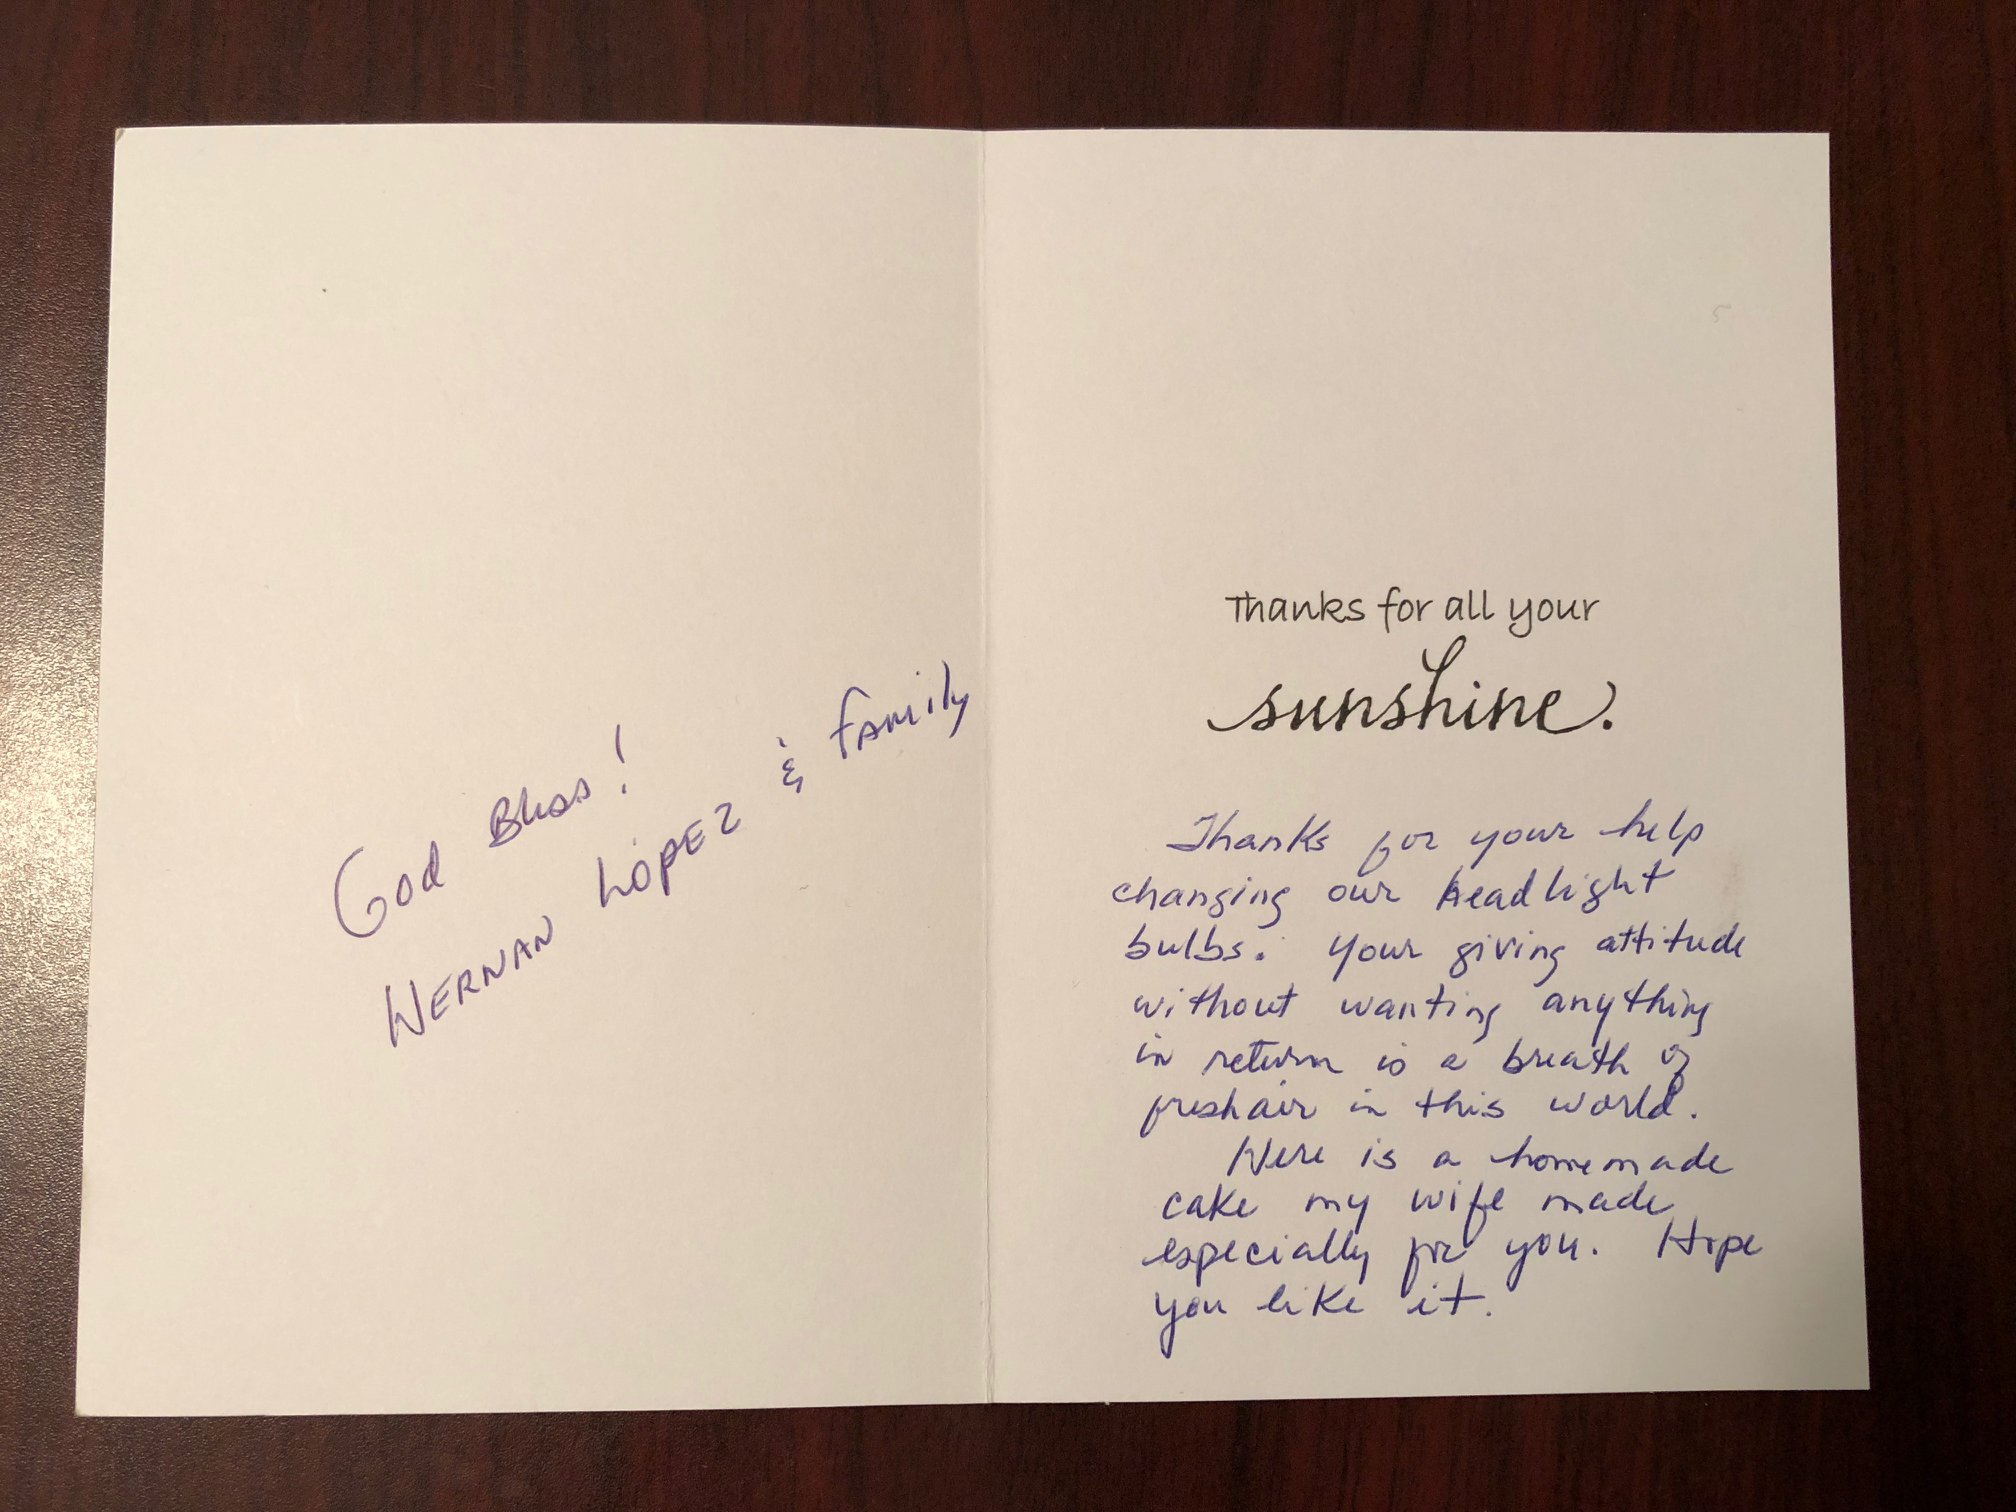 God Bless!
HERNAN LÓPEZ & family
Thanks for all your
sunshine.
Thanks for your help
changing our headlight
bulbs. Your giving attitude
without wanting anything
in return is a breath of
fresh air in this world.
Here is a homemade
cake my wife made
especially for you. Hope
you like it.